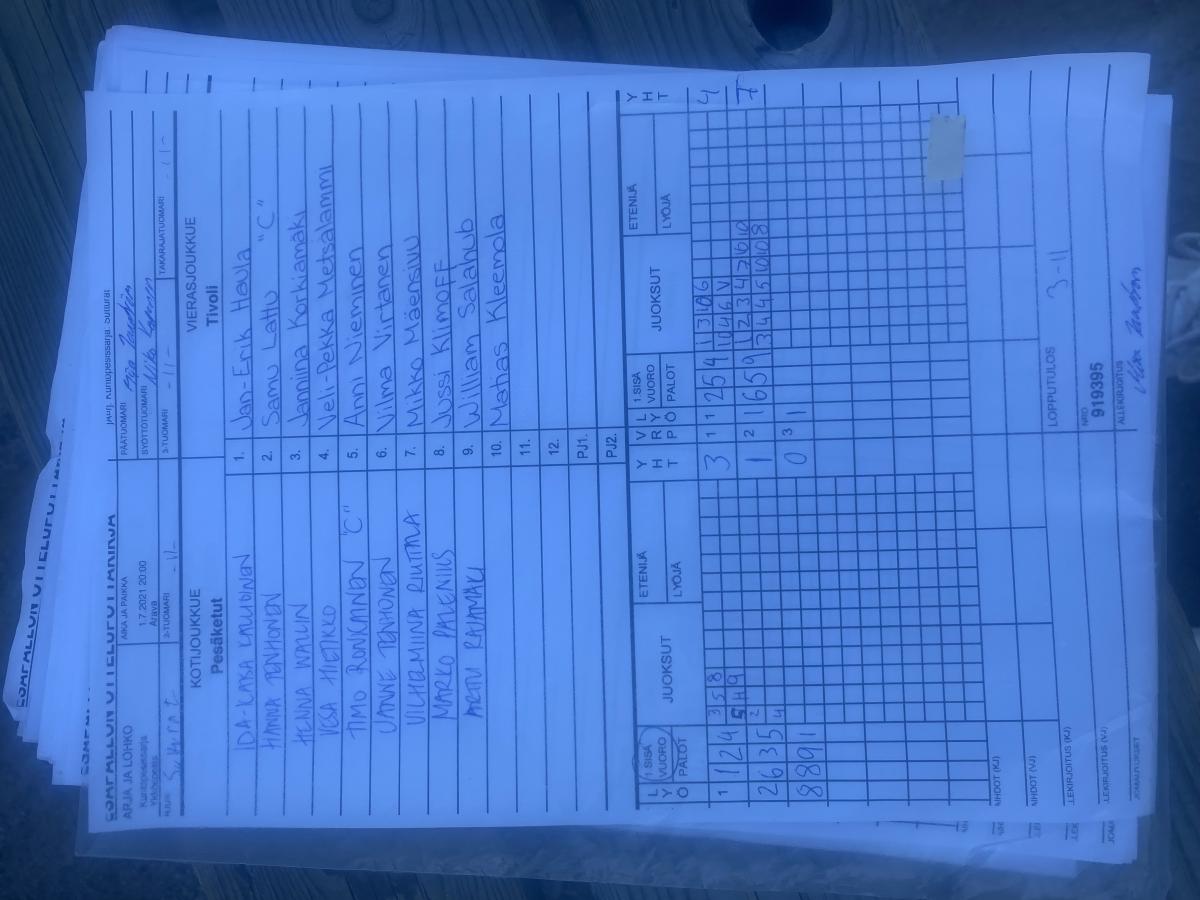 ESÄPALLON OTTELUPÖYTÄKIRJA
ARJA JA LOHKO
AIKA JA PAIKKA
Kuntopesissarja
1.7.2021 20:00
Arava
PÄÄTUOMARI
SYÖTTÖTUOMARI
2-TUOMARI -11-
3-TUOMARI -11-
TAKARAJATUOMARI -11-
KOTIJOUKKUE VIERASJOUKKUE
Pesäketut Tivoli
1. Jan-Erik Haula
HANNA TENHONEN 2. Samu Lattu "C"
HENNA WALIN 3. Jannina Korkiamäki
VESA HIETIKKO 4. Veli-Pekka Metsälammi
TIMO RONKAINEN "C" 5. Anni Nieminen
JANNE TENHONEN 6. Vilma Virtanen
VILHELMIINA RIUTTALA 7. Mikko Mäensivu
MARKO PALENIUS 8. Jussi Klimoff
ARTU RAJAMÄKI 9. William Salahub
10. Matias Kleemola
11.
12.
PJ1.
PJ2.
LYÖ 1.SISÄ VUORO PALOT JUOKSUT ETENIJÄ LYÖJÄ YHT VRP LYÖ 1.SISÄ VUORO PALOT JUOKSUT ETENIJÄ LYÖJÄ YHT
1 1 2 4 3 5 8 3 1 1 2 5 4 1 3 10 6 4
5 H 9 10 4 6 V
2 6 3 5 2 1 2 1 6 5 9 1 2 3 4 7 6 10 7
4 3 4 4 5 10 10 8
8 8 9 1 0 3 1
LOPPUTULOS 3-11
NRO
919395
ALLEKIRJOITUS